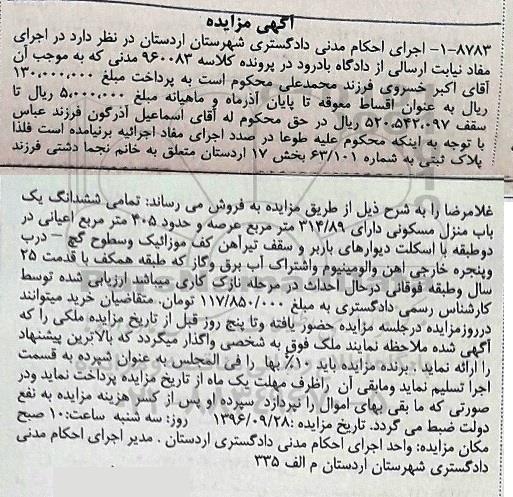 آگهی مزایده
۱-۸۷۸۳- اجرای احکام مدنی دادگستری شهرستان اردستان در نظر دارد در اجرای
مفاد نیابت ارسالی از دادگاه بادرود در پرونده کلاسه ۹۶۰۰۸۳ مدنی که به موجب آن
آقای اکبر خسروی فرزند محمدعلی محکوم است به پرداخت مبلغ ۱۳۰,۰۰۰,۰۰۰
ریال به عنوان اقساط معوقه تا پایان آذرماه و ماهیانه مبلغ ۵,۰۰۰,۰۰۰ ریال تا
سقف ۵۲۰,۵۴۲,۰۹۷ ریال در حق محکوم له آقای اسماعیل آذرگون فرزند عباس
با توجه به اینکه محکوم علیه طوعا در صدد اجرای مفاد اجرائیه برنیامده است فلذا
پلاک ثبتی به شماره ۶۳/۱۰۱ بخش ۱۷ اردستان متعلق به خانم نجما دشتی فرزند
غلامرضا را به شرح ذیل از طریق مزایده به فروش می رساند: تمامی ششدانگ یک
باب منزل مسکونی دارای ۳۱۴/۸۹ متر مربع عرصه و حدود ۴۰۵ متر مربع اعیانی در
دوطبقه با اسکلت دیوارهای باربر و سقف تیرآهن کف موزائیک وسطوح گچ – درب
وپنجره خارجی آهن والومینیوم واشتراک آب برق وگاز که طبقه همکف با قدمت ۲۵
سال وطبقه فوقانی درحال احداث در مرحله نازک کاری میباشد ارزیابی شده توسط
کارشناس رسمی دادگستری به مبلغ ۱۱۷/۸۵۰/۰۰۰ تومان. متقاضیان خرید میتوانند
درروزمزایده درجلسه مزایده حضور یافته وتا پنج روز قبل از تاریخ مزایده ملکی را که
آگهی شده ملاحظه نمایند ملک فوق به شخصی واگذار میگردد که بالاترین پیشنهاد
را ارائه نماید . برنده مزایده باید ۱۰٪ بها را فی المجلس به عنوان سپرده به قسمت
اجرا تسلیم نماید ومابقی آن راظرف مهلت یک ماه از تاریخ مزایده پرداخت نماید ودر
صورتی که ما بقی بهای اموال را نپردازد سپرده او پس از کسر هزینه مزایده به نفع
دولت ضبط می گردد. تاریخ مزایده :۱۳۹۶/۰۹/۲۸ روز: سه شنبه ساعت:۱۰ صبح
مکان مزایده: واحد اجرای احکام مدنی دادگستری اردستان . مدیر اجرای احکام مدنی
دادگستری شهرستان اردستان م الف ۳۳۵